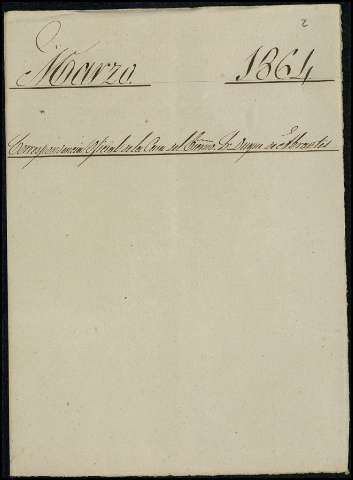 2
Marzo. 1864
Correspondencia Oficial de la Casa del Excmo. Sr. Duque de Abrantes